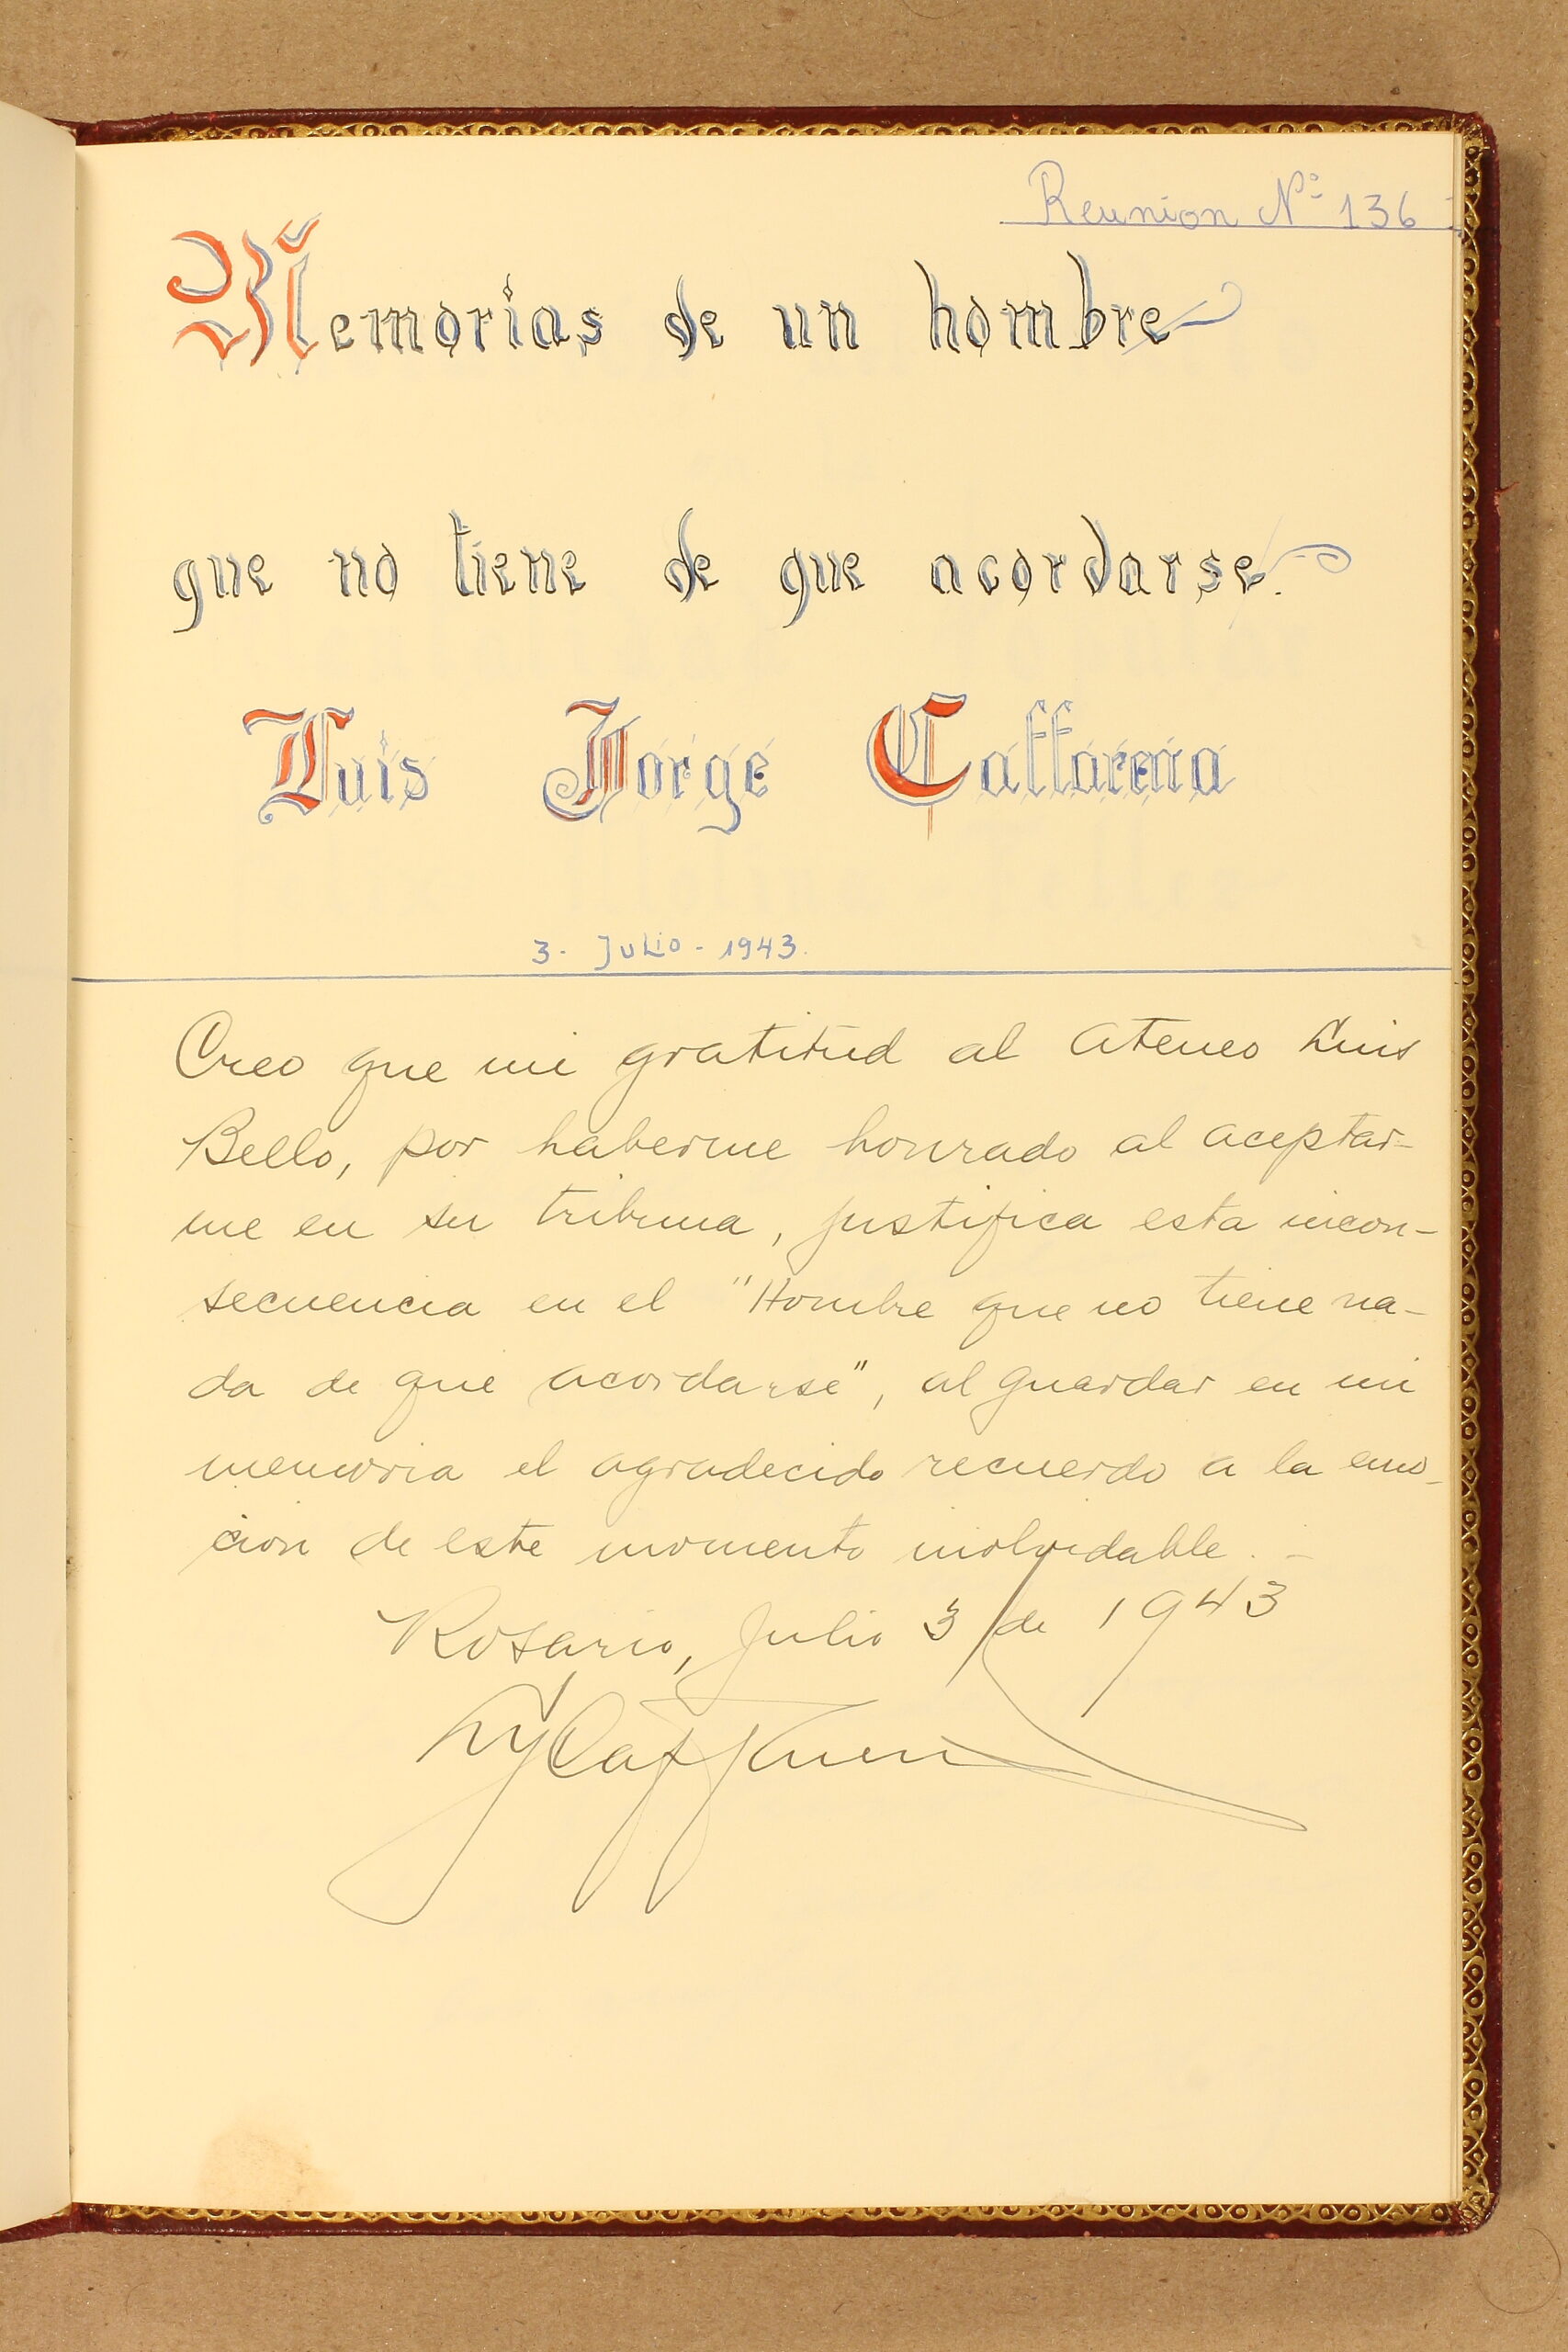 Reunion Nº 136
Memorias de un hombre
que no tiene de que acordarse.
Luis Jorge Caffarena
3 - Julio - 1943.
Creo que mi gratitud al Ateneo Luis
Bello, por haberme honrado al aceptar-
me en su tribuna, justifica esta incon-
secuencia en el "Hombre que no tiene na-
da de que acordarse", al guardar en mi
memoria el agradecido recuerdo a la emo-
cion de este momento inolvidable. -
Rosario, Julio 3/de 1943
LJCaffarena